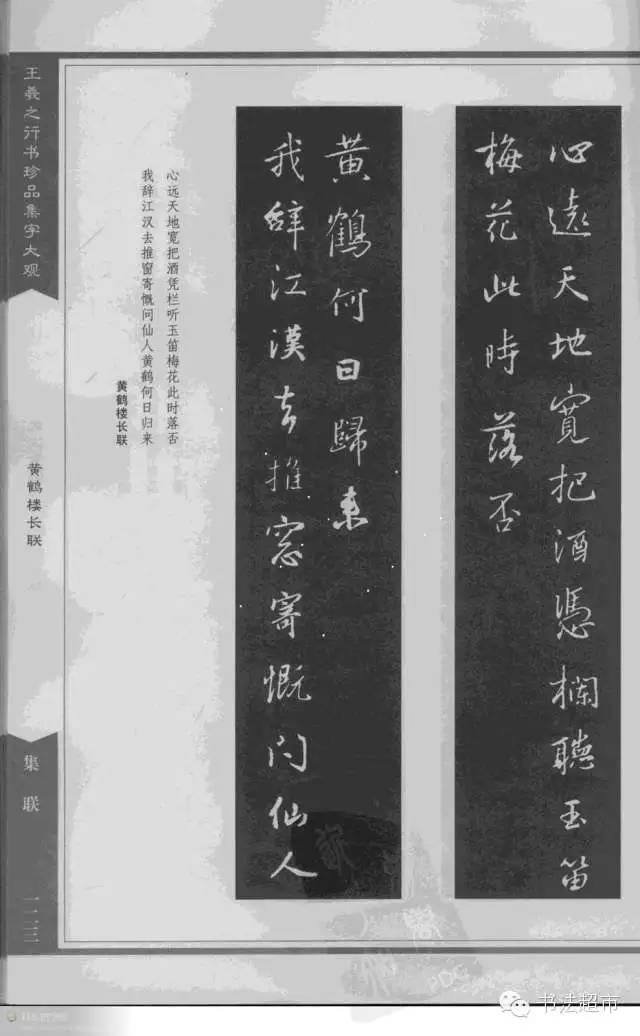 心遠天地寬把酒憑欄聽玉笛
梅花此時落否
我辭江漢去推窗寄慨問仙人
黃鶴何日歸來
心远天地宽把酒凭栏听玉笛梅花此时落否
我辞江汉去推窗寄慨问仙人黄鹤何日归来
黄鹤楼长联
王羲之行书珍品集字大观
黄鹤楼长联
集联
书法超市